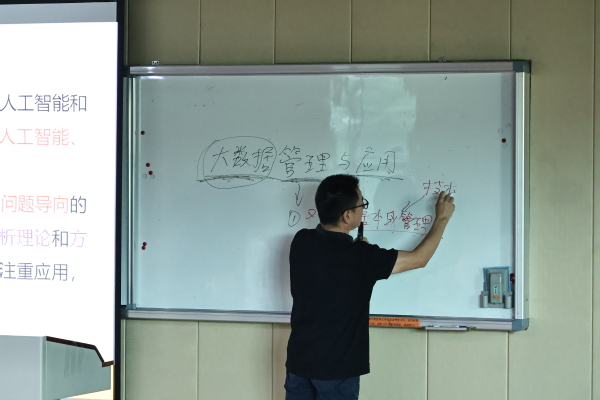 人工智能和
人工智能、
问题导向的
析理论和方
注重应用，
大数据管理与应用
技术
① 管理